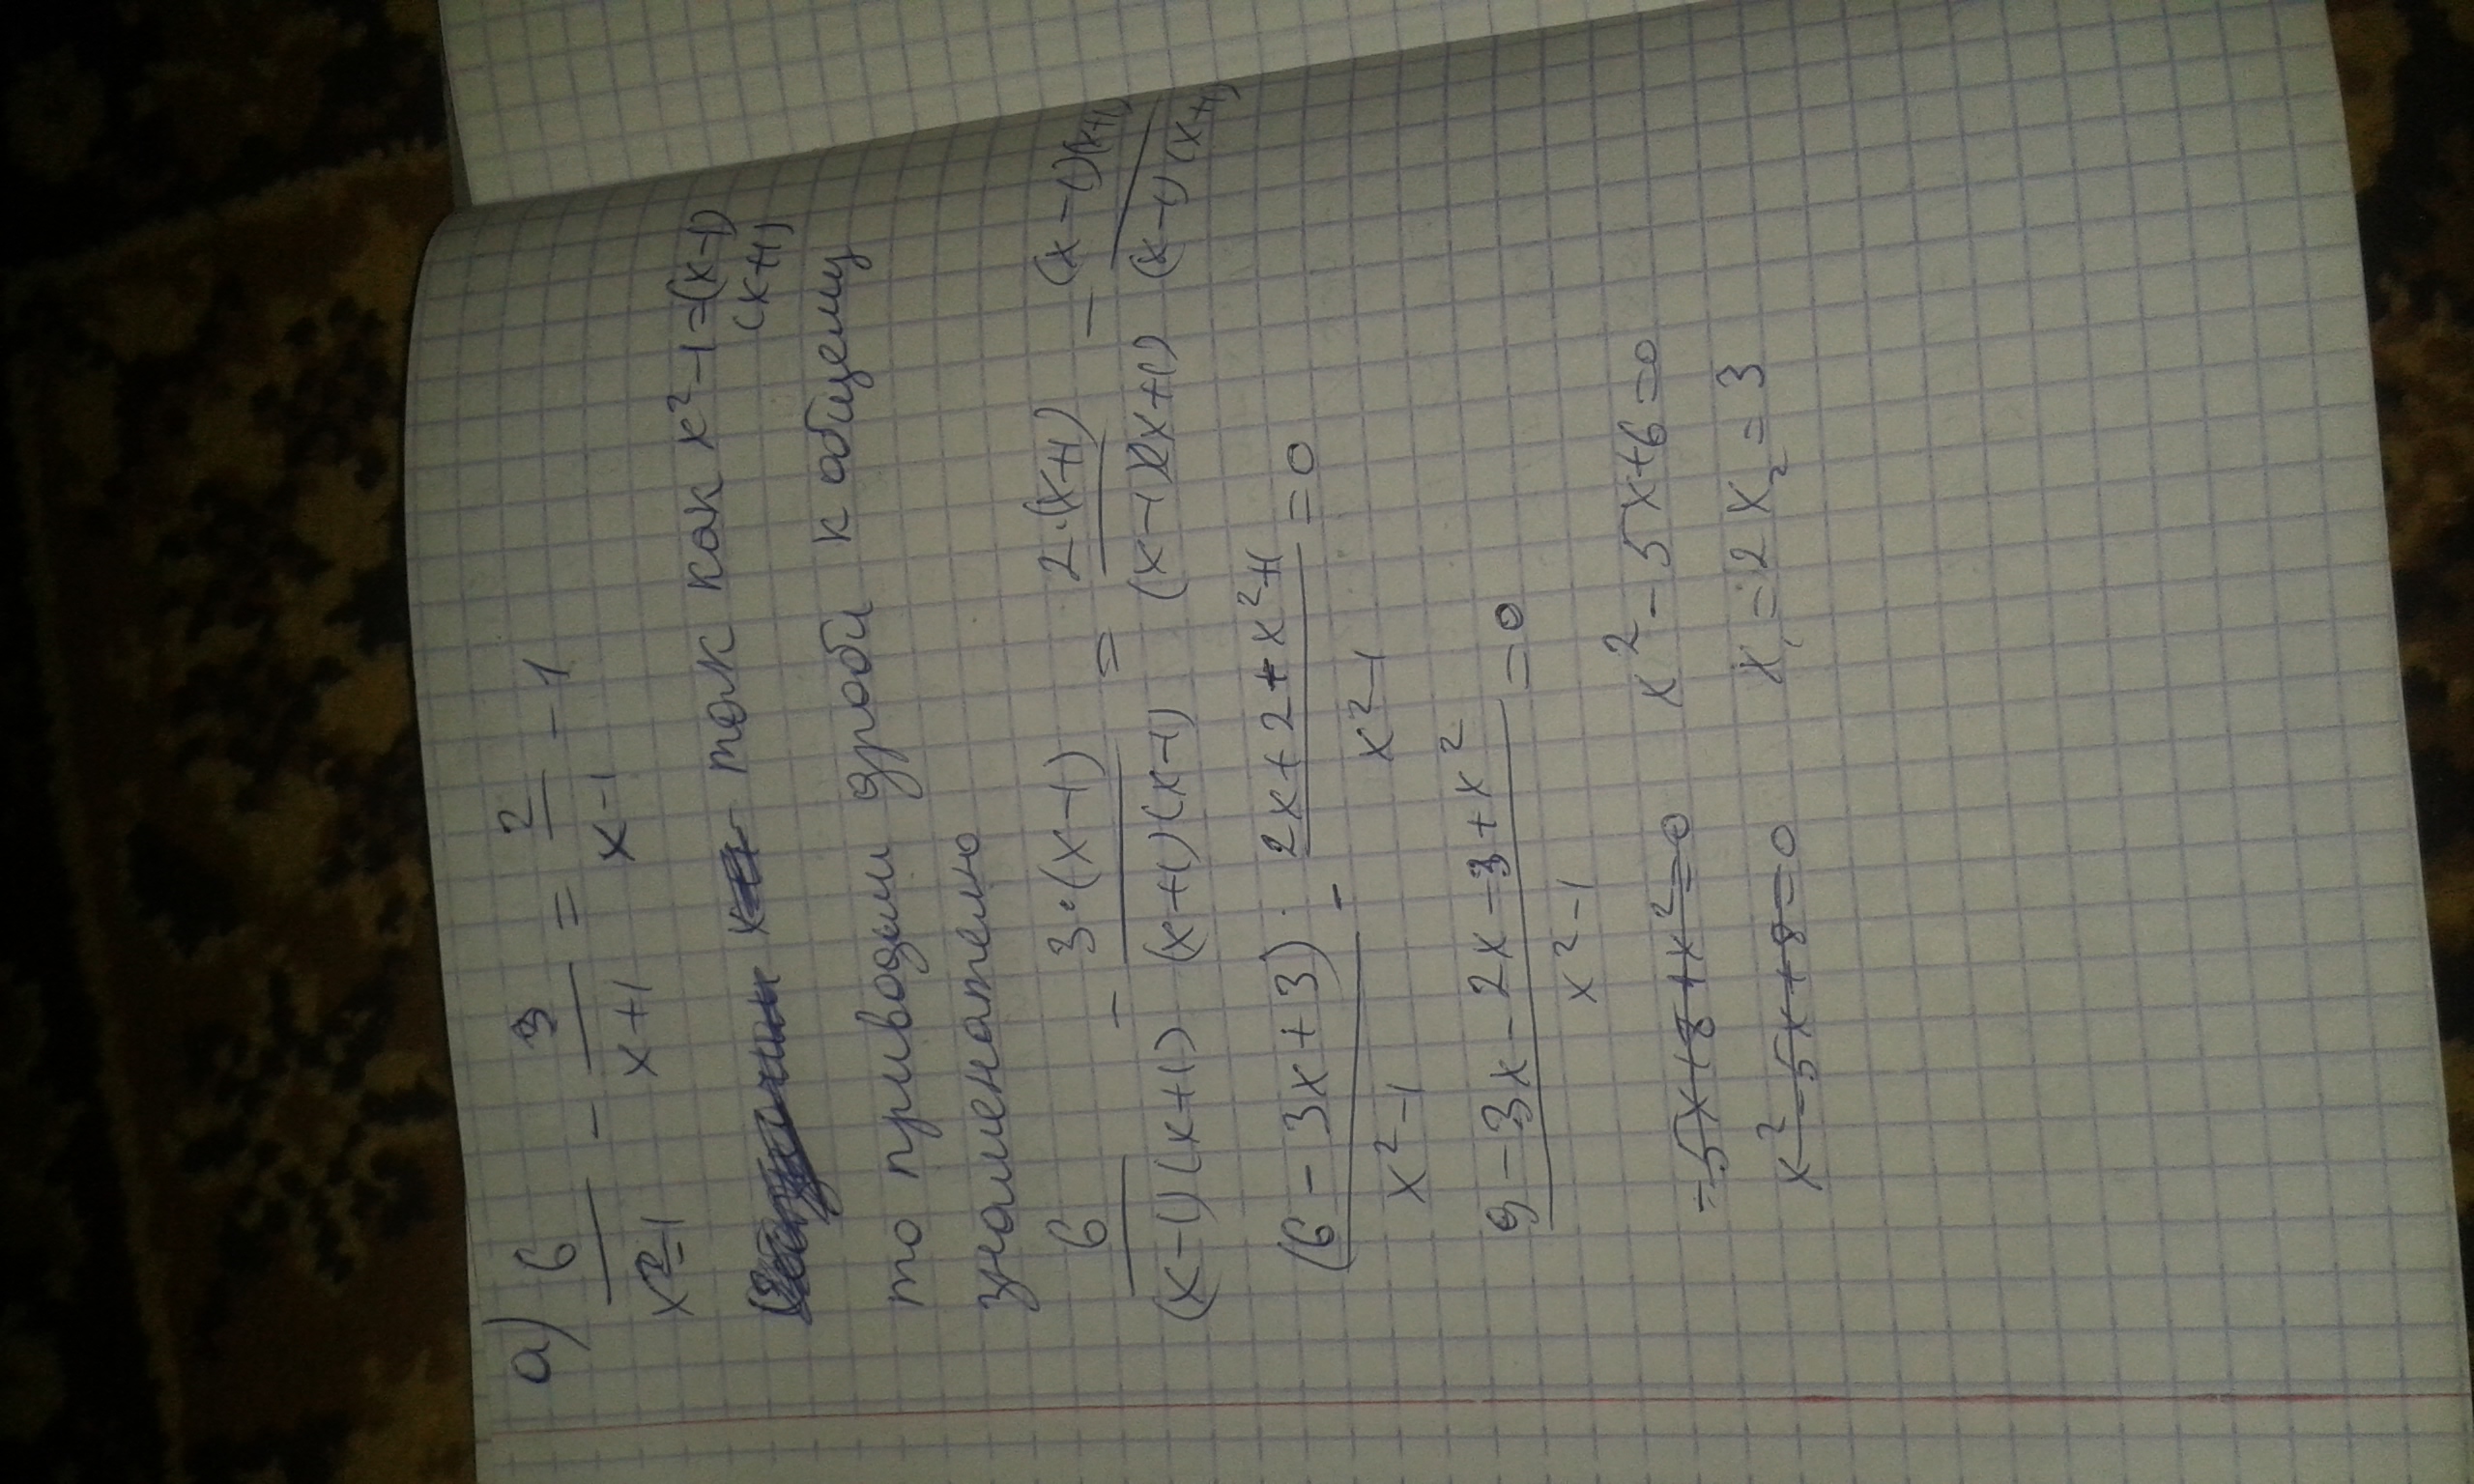 а) 6/(x²-1) - 3/(x+1) = 2/(x-1) - 1
так как x²-1=(x-1)
(x+1)
то приводим дроби к общему
знаменателю
6/((x-1)(x+1)) - 3·(x-1)/((x+1)(x-1)) = 2·(x+1)/((x-1)(x+1)) - (x-1)(x+1)/((x-1)(x+1))
(6-3x+3)/(x²-1) - (2x+2-x²+1)/(x²-1) = 0
(9-3x-2x-3+x²)/(x²-1) = 0
-5x+8+x²=0 x²-5x+6=0
x²-5x+8=0 x₁=2 x₂=3